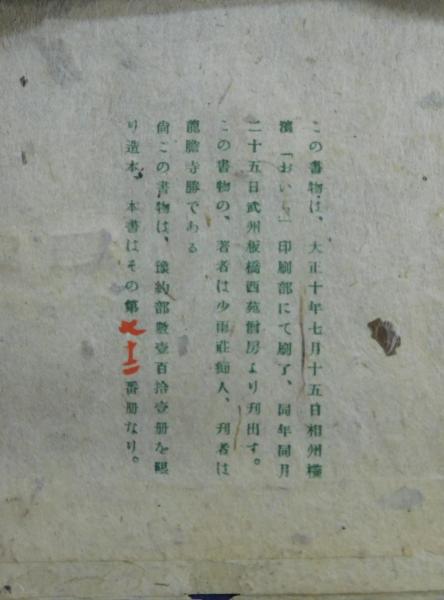 この書物は、大正十年七月十五日相州横
濱「おいら」印刷部にて刷了、同年同月
二十五日武州板橋西苑樹房より刊出す。
この書物の、著者は少雨莊痴人、刊者は
龍膽寺勝である
尙この書物は、豫約部數壹百拾壹册を限
り造本、本書はその第七十二番册なり。